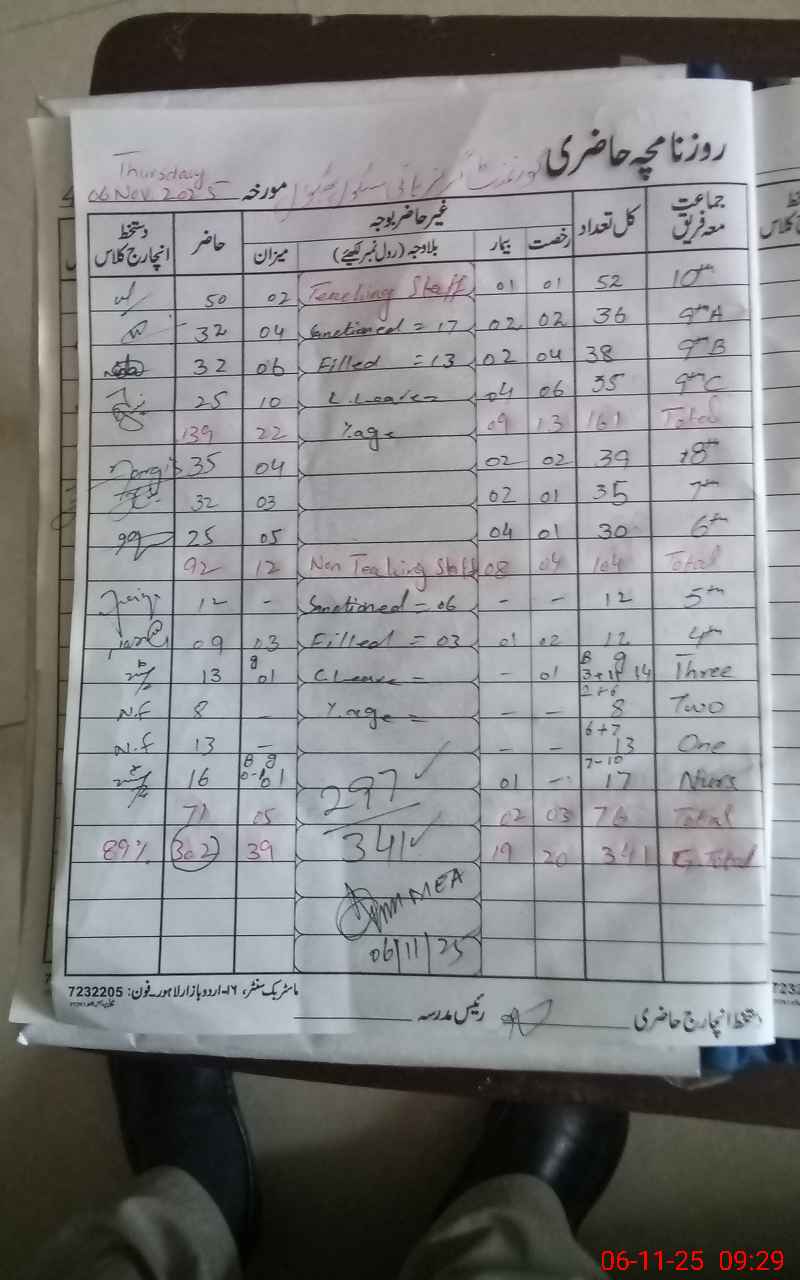 روزنامچہ حاضری
گورنمنٹ گرلز ہائی سکول
Thursday
06 Nov 2025 مورخہ
جماعت معہ فریق کل تعداد غیر حاضر بوجہ حاضر دستخط انچارج کلاس
رخصت بیمار بلاوجہ (رول نمبر لکھیئے) میزان
10th 52 01 01 Teaching Staff 02 50
9th A 36 02 02 Sanctioned = 17 04 32
9th B 38 04 02 Filled = 13 06 32
9th C 35 06 04 L. Leave = 10 25
Total 161 13 09 %.age = 22 139
8th 39 02 02 04 35
7th 35 01 02 03 32
6th 30 01 04 05 25
Total 104 04 08 Non Teaching Staff 12 92
5th 12 - - Sanctioned = 06 - 12
4th 12 02 01 Filled = 03 03 09
Three B g 3+11 14 01 - C. Leave = g 01 13
Two 2+6 8 - - %.age = - 8 N.f
One 6+7 13 - - - 13 N.f
7-10 17 - 01 B g 0-1 01 16
297
Total 76 03 02 05 71
G Total 341 20 19 341 39 302 89%
MEA
06/11/25
ماسٹر بک سنٹر، ۱۶-اردو بازار لاہور۔ فون: 7232205
دستخط انچارج حاضری رئیس مدرسہ
06-11-25 09:29